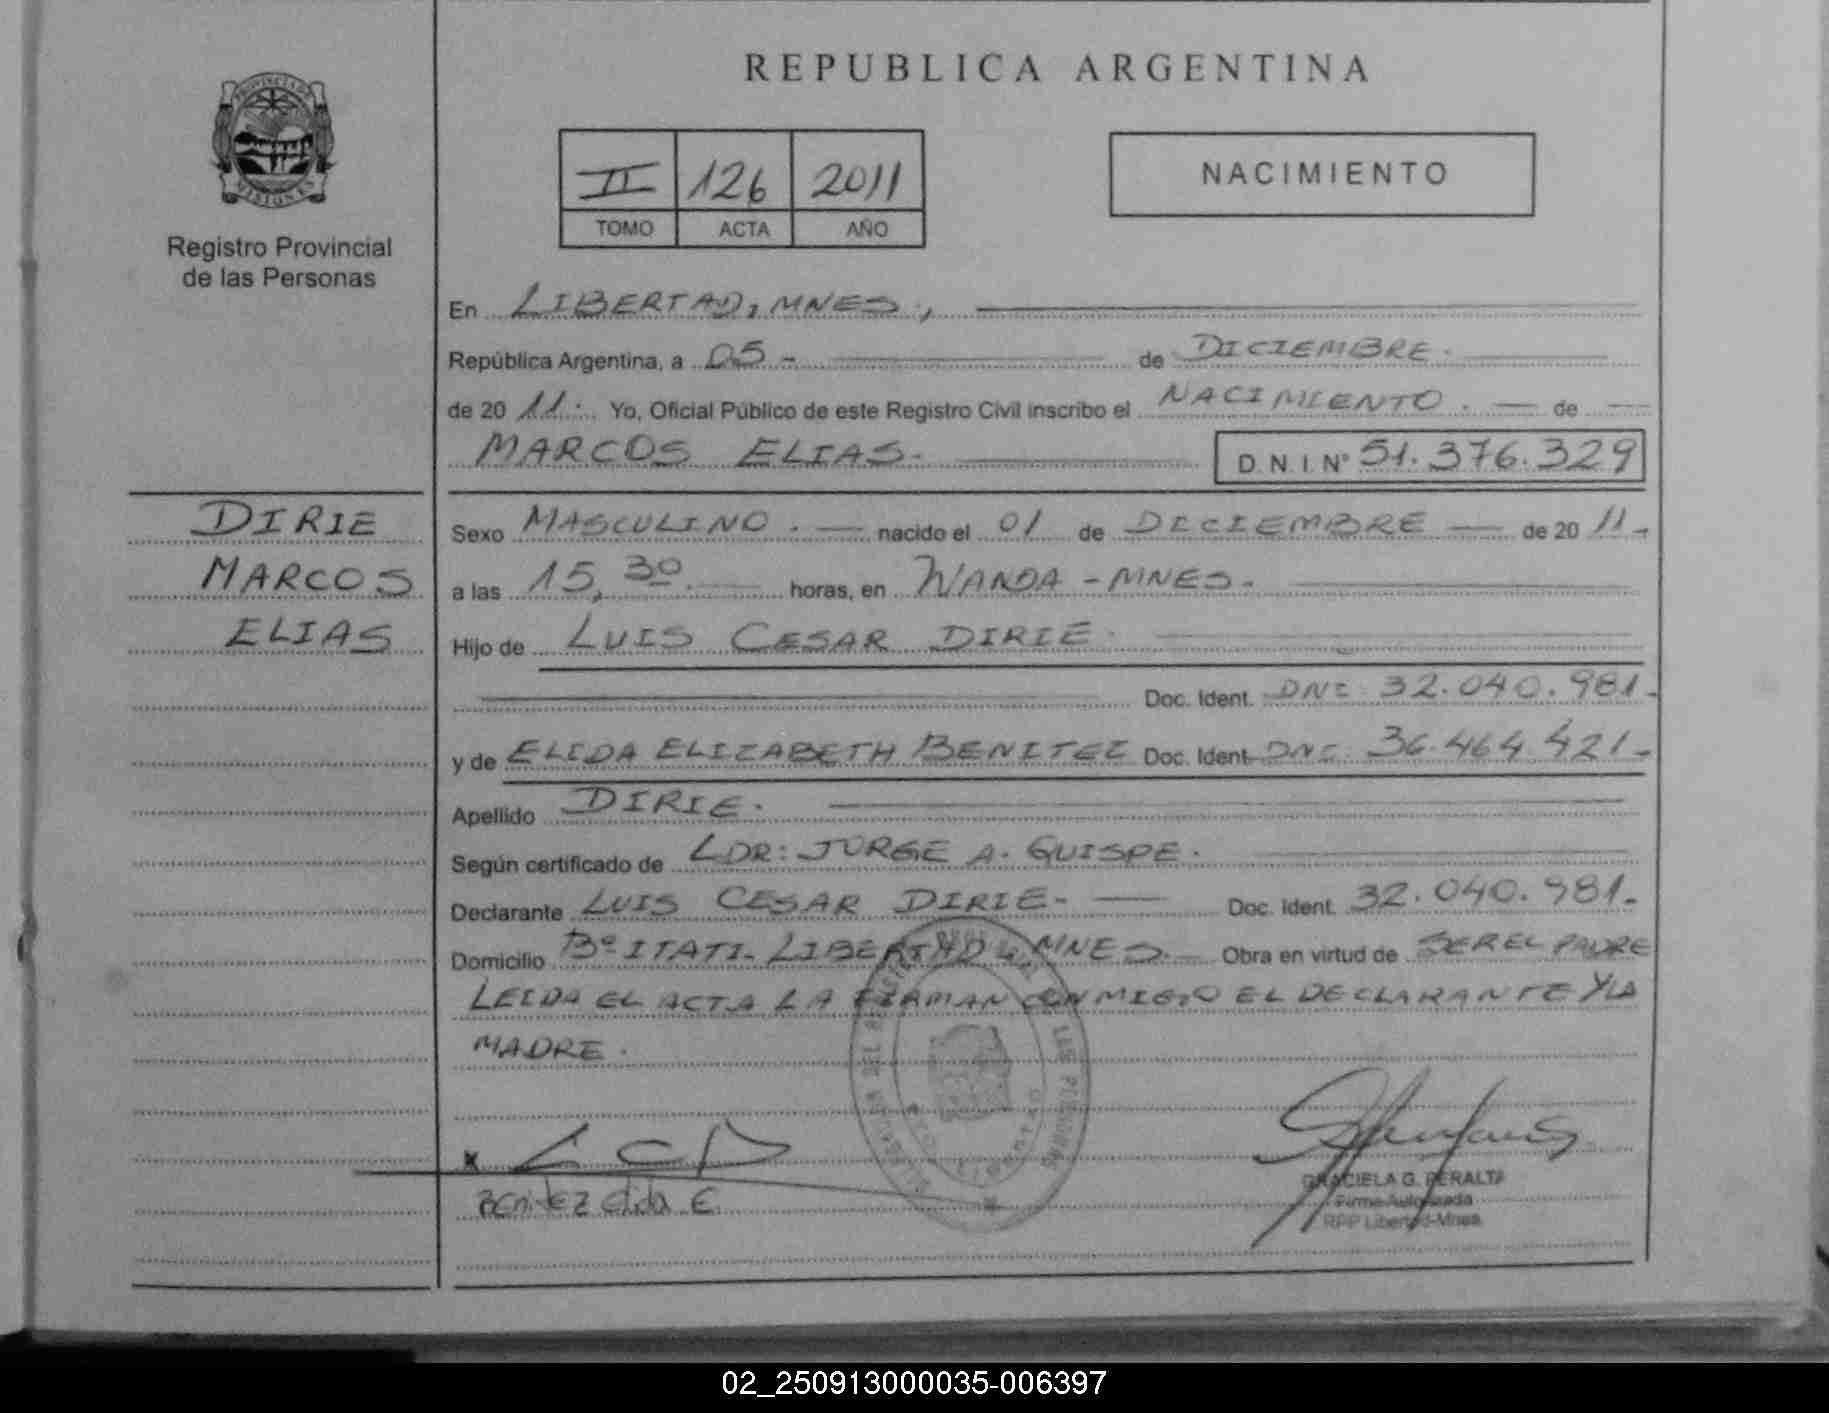 REPUBLICA ARGENTINA
PROVINCIA DE
MISIONES
Registro Provincial
de las Personas
II 126 2011
TOMO ACTA AÑO
NACIMIENTO
En LIBERTAD, MNES,
República Argentina, a 05 - de DICIEMBRE.
de 20 11. Yo, Oficial Público de este Registro Civil inscribo el NACIMIENTO. de
MARCOS ELIAS. D.N.I. Nº 51.376.329
DIRIE
MARCOS
ELIAS
Sexo MASCULINO. nacido el 01 de DICIEMBRE de 20 11-
a las 15,30. horas, en WANDA - MNES.
Hijo de LUIS CESAR DIRIE.
Doc. Ident. DNI 32.040.981-
y de ELIDA ELIZABETH BENITEZ Doc. Ident DNI. 36.464.421-
Apellido DIRIE.
Según certificado de LDR: JORGE A. QUISPE.
Declarante LUIS CESAR DIRIE- Doc. Ident. 32.040.981-
Domicilio Bº ITATI- LIBERTAD MNES. Obra en virtud de SER EL PADRE
LEIDA EL ACTA LA FIRMAN CONMIGO EL DECLARANTE Y LA
MADRE.
x LCD
Benitez Elida E
GRACIELA G. PERALTA
Firma Autorizada
RPP Libertad-Mnes
02_250913000035-006397